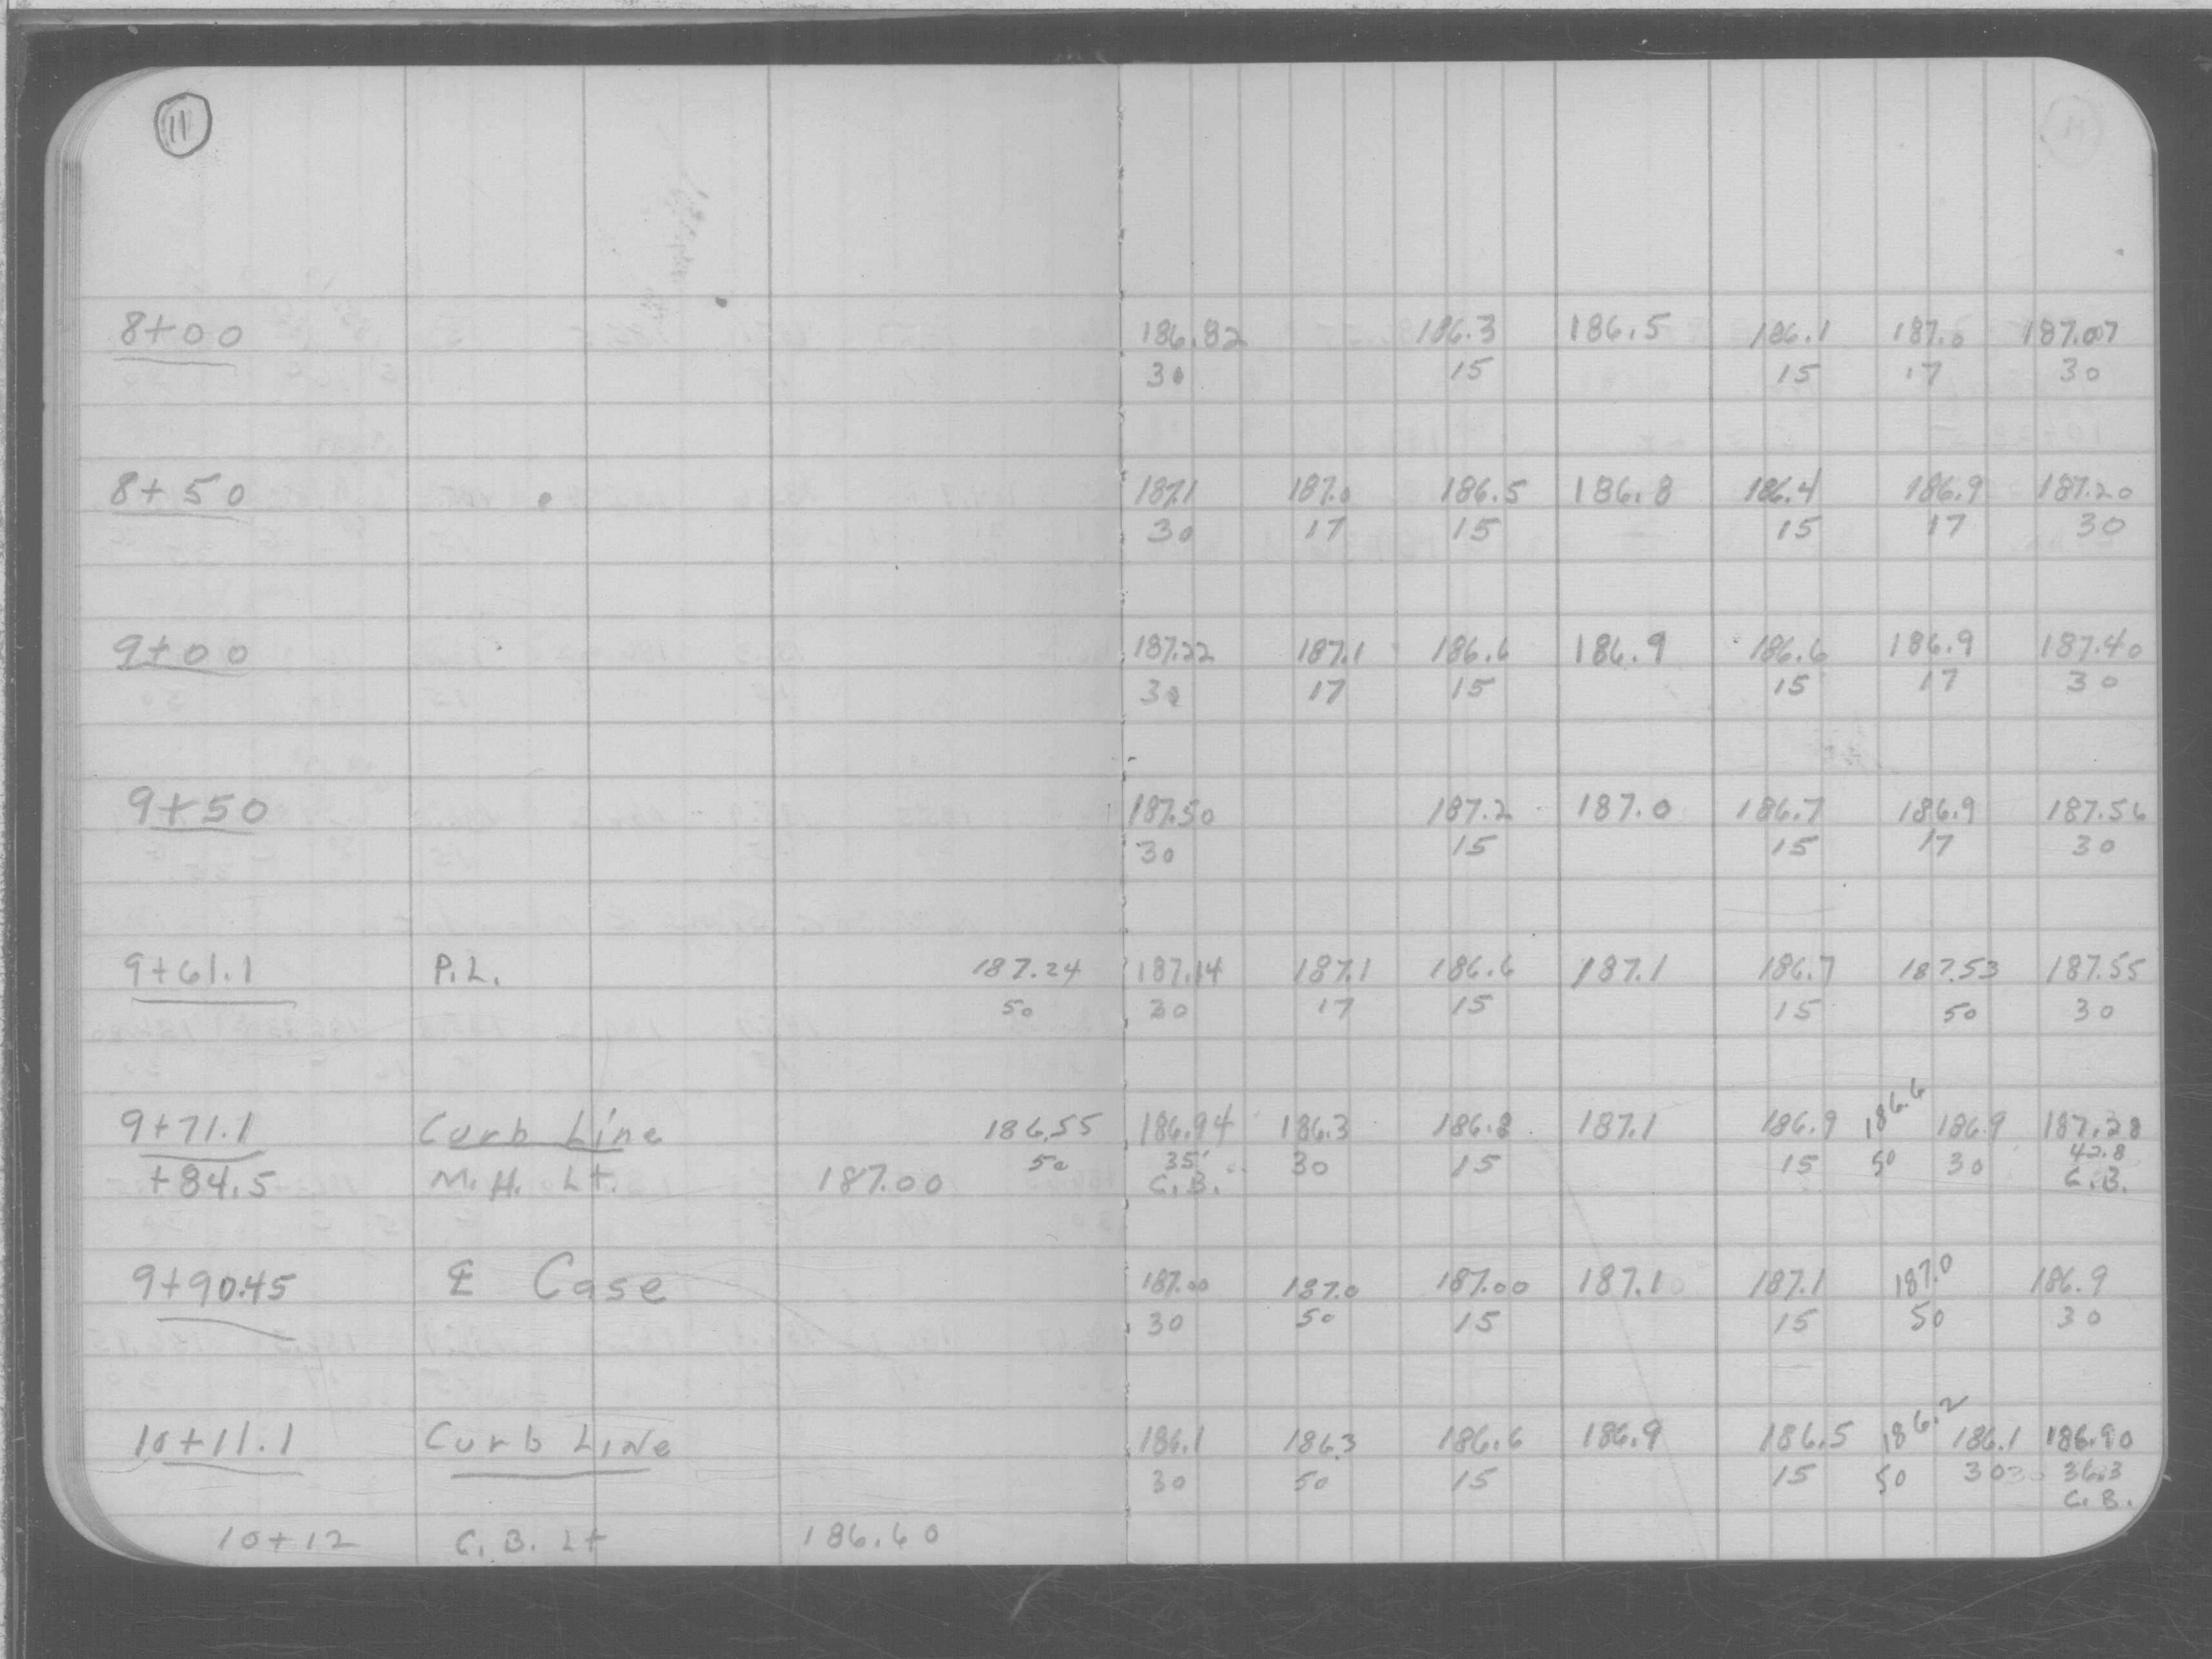 11
8+00 186.82 186.3 186.5 186.1 187.0 187.07
30 15 15 17 30
8+50 187.1 187.0 186.5 186.8 186.4 186.9 187.20
30 17 15 15 17 30
9+00 187.22 187.1 186.6 186.9 186.6 186.9 187.40
30 17 15 15 17 30
9+50 187.50 187.2 187.0 186.7 186.9 187.56
30 15 15 17 30
9+61.1 P.L. 187.24 187.14 187.1 186.6 187.1 186.7 187.53 187.55
50 30 17 15 15 50 30
9+71.1 Curb Line 186.55 186.94 186.3 186.8 187.1 186.9 186.6 186.9 187.28
50 35' 30 15 15 50 30 42.8
+84.5 M.H. Lt. 187.00 C.B. C.B.
9+90.45 ℄ Case 187.00 187.0 187.00 187.1 187.1 187.0 186.9
30 50 15 15 50 30
10+11.1 Curb Line 186.1 186.3 186.6 186.9 186.5 186.2 186.1 186.90
30 50 15 15 50 30 36.3
C.B.
10+12 C.B. Lt 186.60